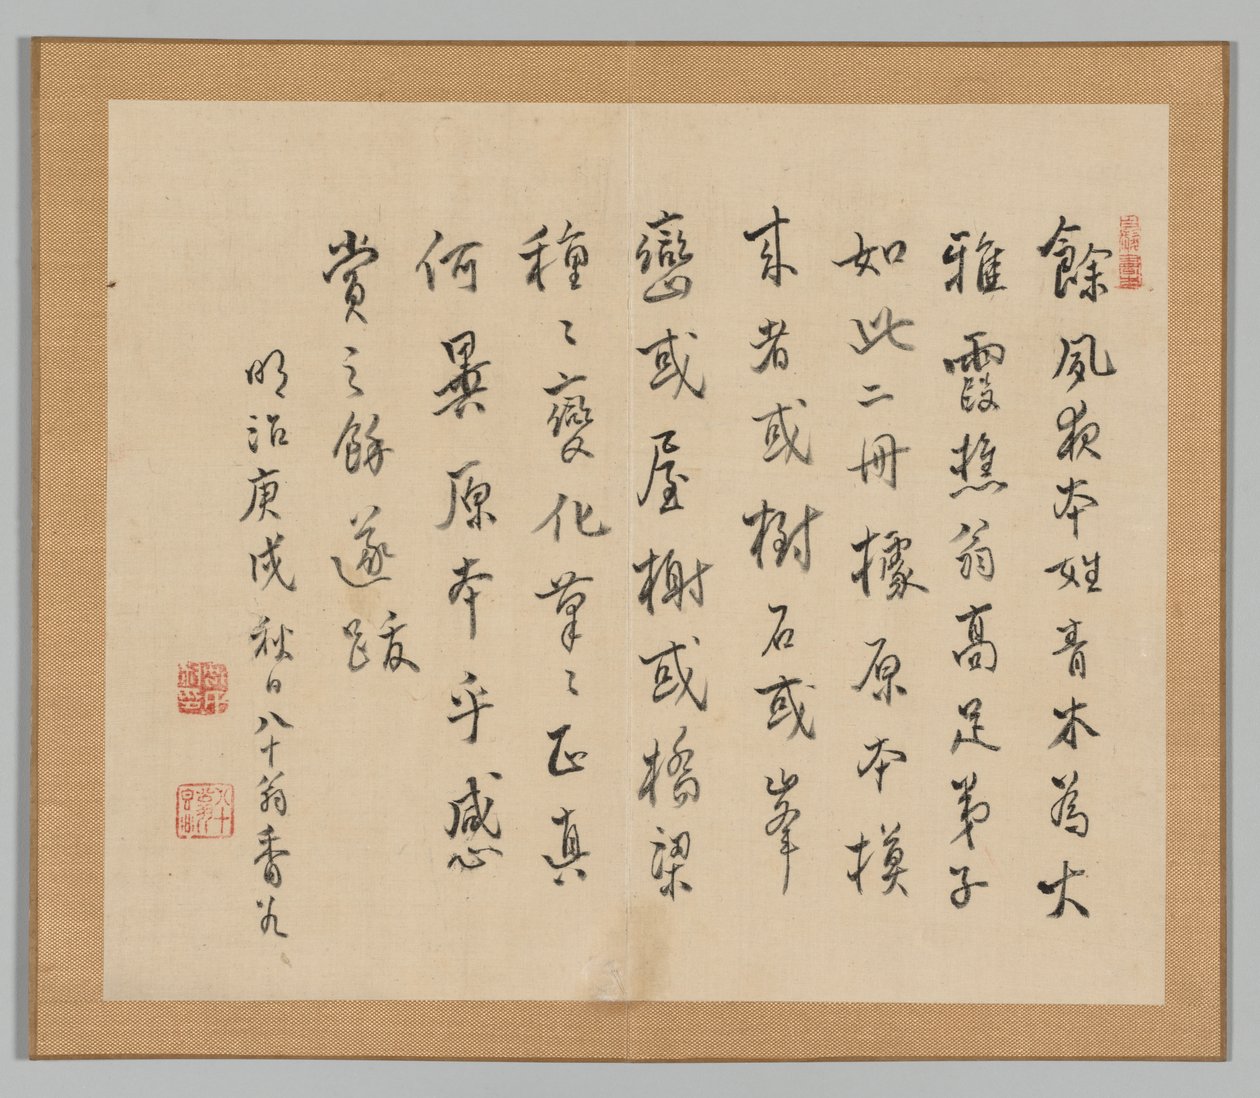 餘夙夜本姓青木為大
雅霞樵翁高足弟子
如此二冊據原本模
来者或樹石或峯
巒或屋榭或橋梁
種〻變化筆〻正真
何異原本乎感
賞之餘遂跋
明治庚戌秋日八十翁香